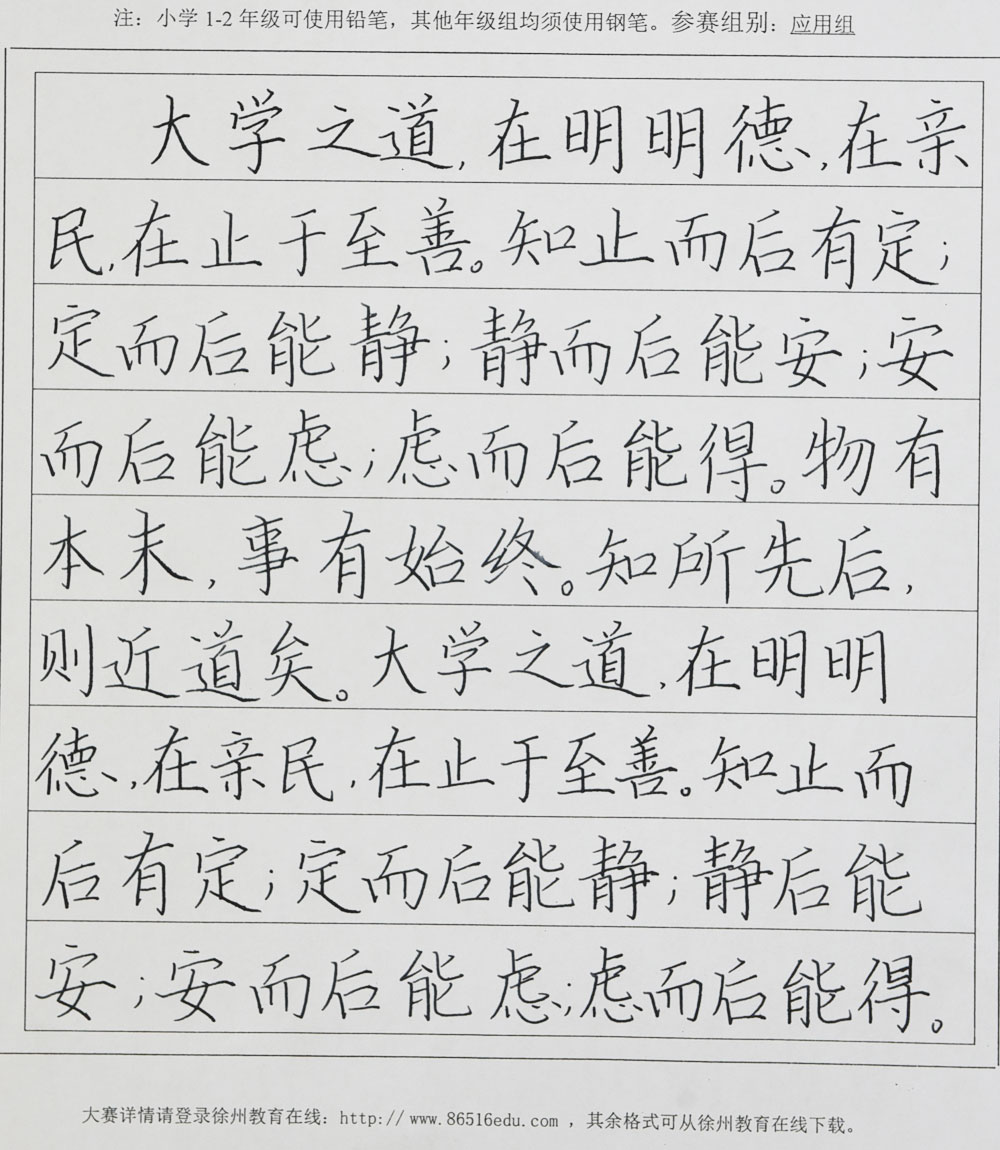 注：小学1-2年级可使用铅笔，其他年级组均须使用钢笔。参赛组别：应用组
大学之道，在明明德，在亲
民，在止于至善。知止而后有定；
定而后能静；静而后能安；安
而后能虑；虑而后能得。物有
本末，事有始终。知所先后，
则近道矣。大学之道，在明明
德，在亲民，在止于至善。知止而
后有定；定而后能静；静后能
安；安而后能虑；虑而后能得。
大赛详情请登录徐州教育在线：http://www.86516edu.com，其余格式可从徐州教育在线下载。